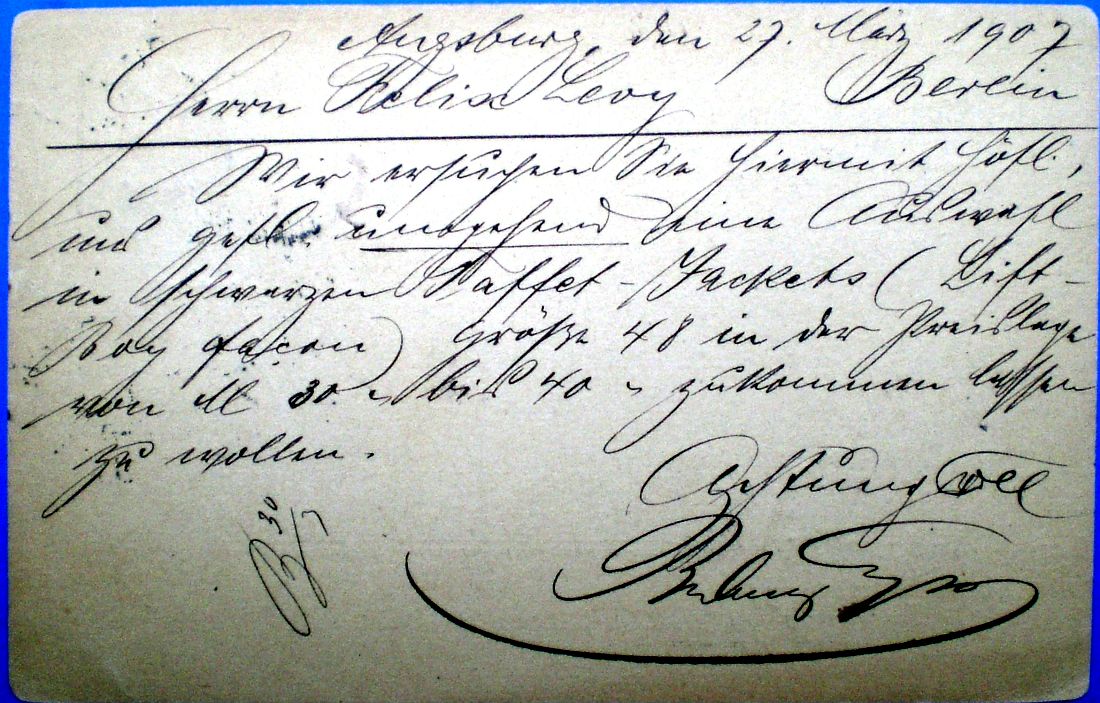 Augsburg, den 27. März 1907
Herrn Felix Levy Berlin
Wir ersuchen Sie hiermit höfl.,
uns gefl. umgehend eine Auswahl
in schwarzen Taffet-Jackets (Lift-
Boy façon) Größe 48 in der Preislage
von M 30 bis 40 zukommen lassen
zu wollen.
Achtungsvoll
30/3